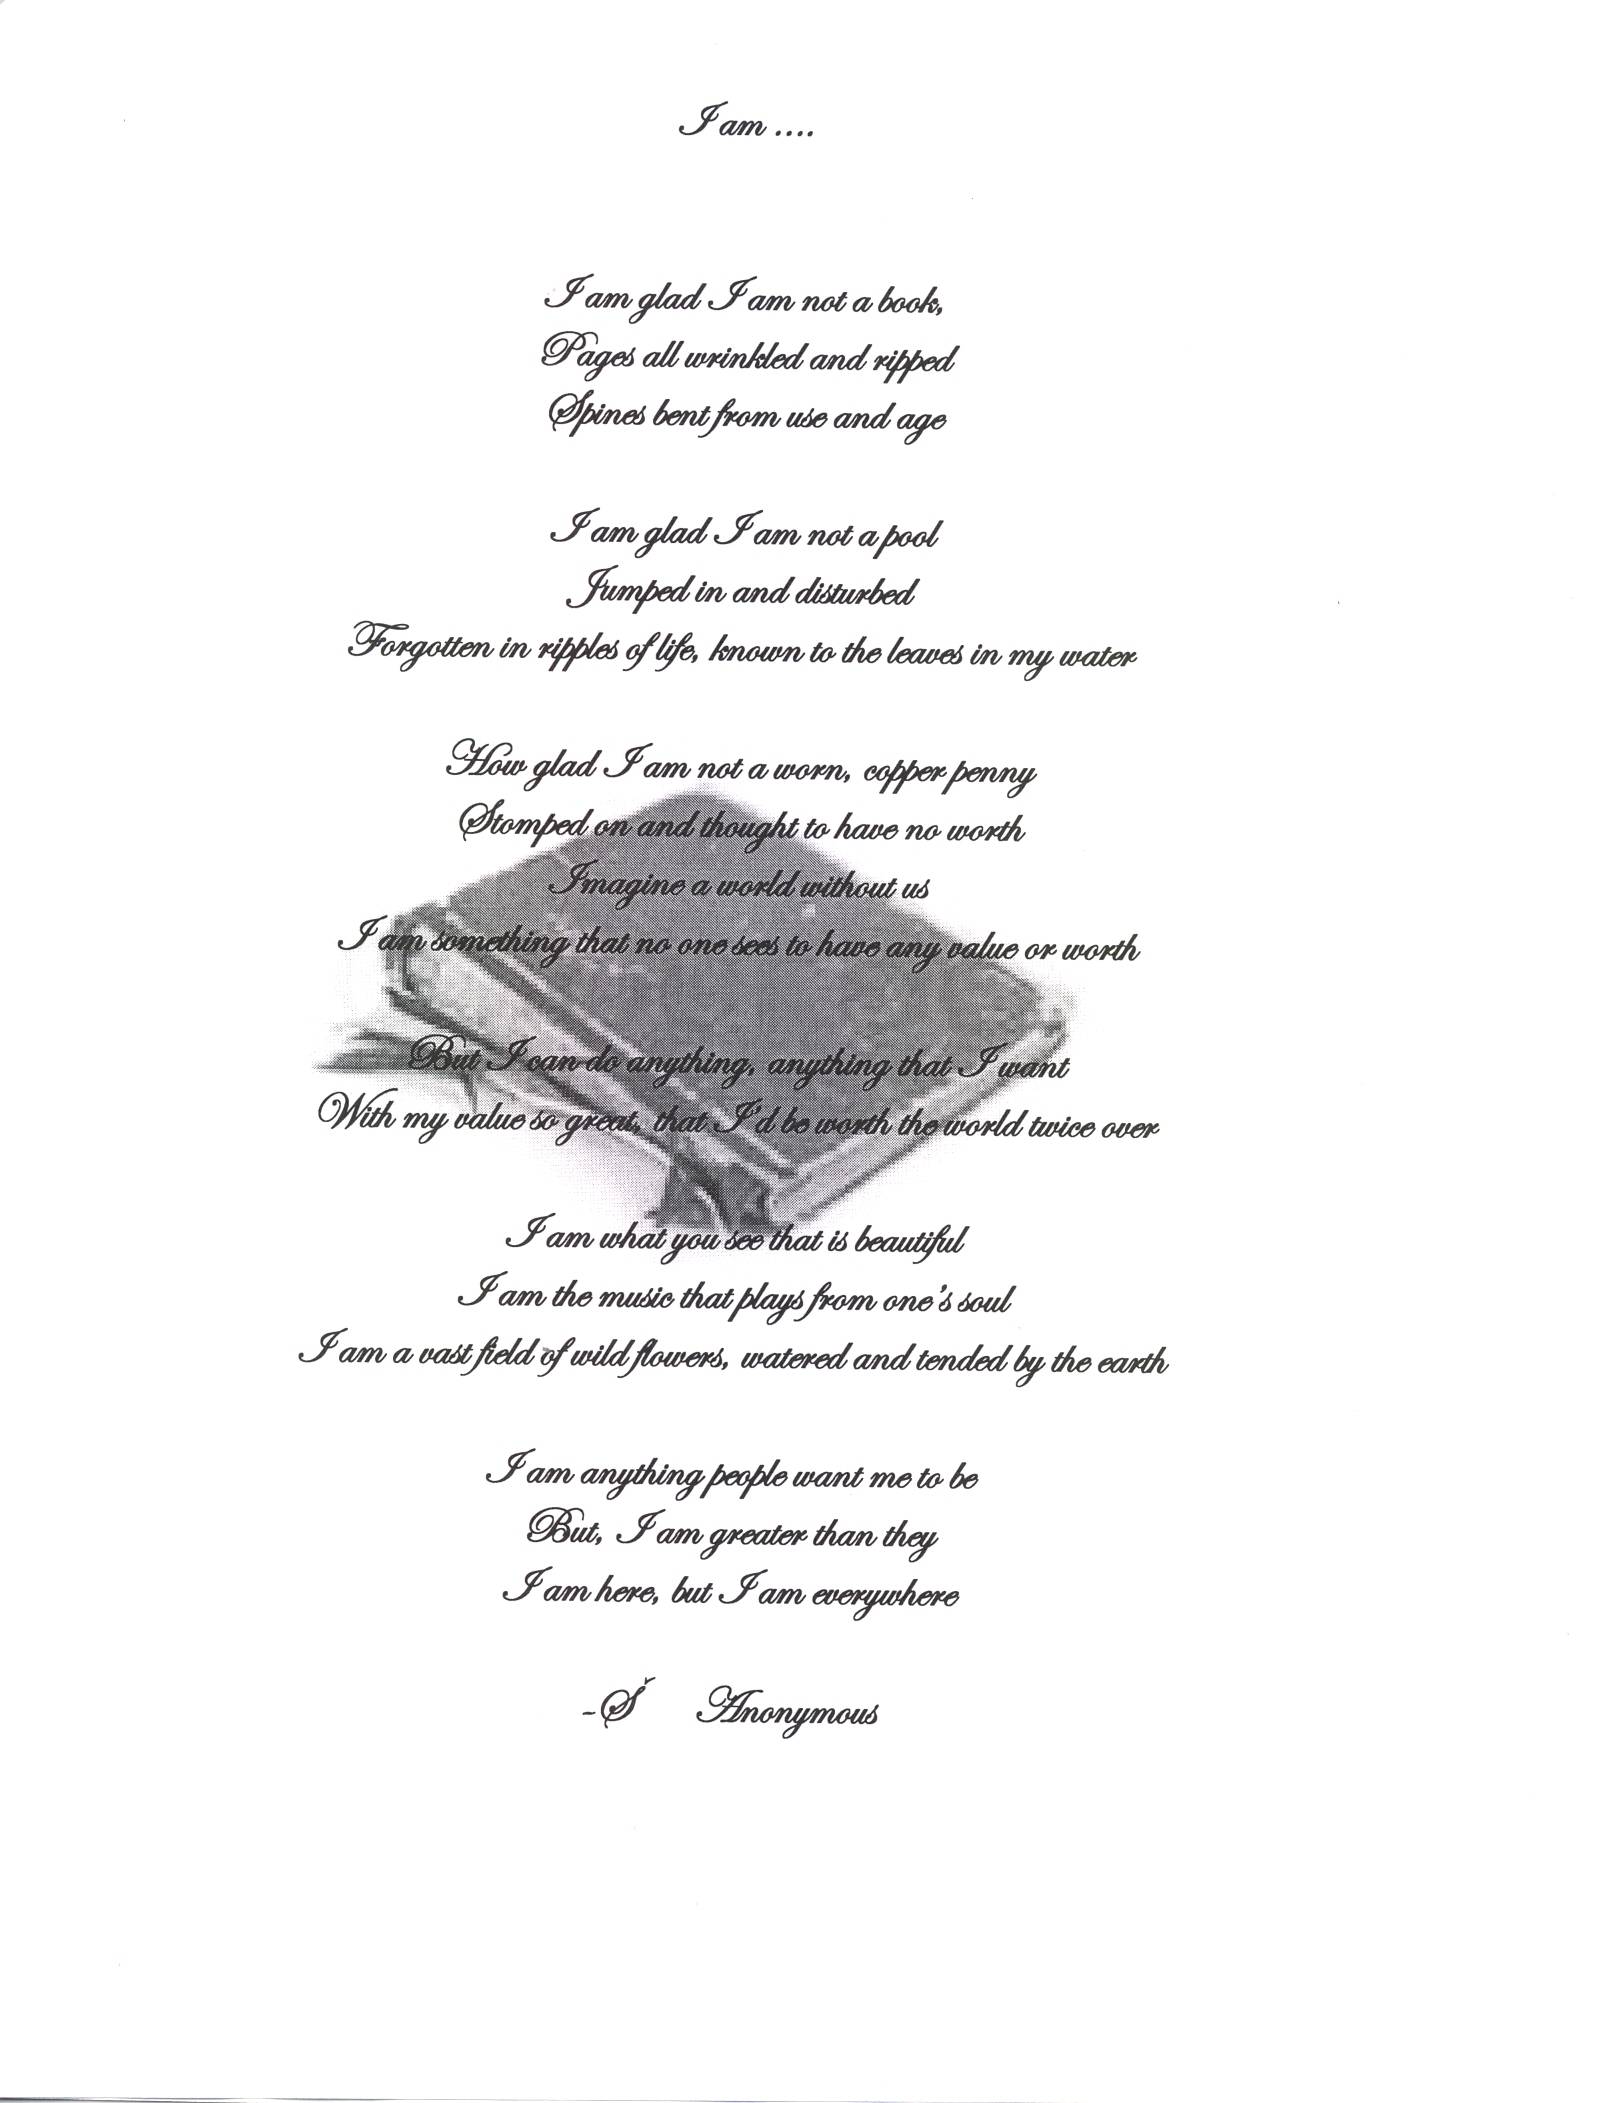 I am ....
I am glad I am not a book,
Pages all wrinkled and ripped
Spines bent from use and age
I am glad I am not a pool
Jumped in and disturbed
Forgotten in ripples of life, known to the leaves in my water
How glad I am not a worn, copper penny
Stomped on and thought to have no worth
Imagine a world without us
I am something that no one sees to have any value or worth
But I can do anything, anything that I want
With my value so great, that I'd be worth the world twice over
I am what you see that is beautiful
I am the music that plays from one's soul
I am a vast field of wild flowers, watered and tended by the earth
I am anything people want me to be
But, I am greater than they
I am here, but I am everywhere
-Š Anonymous